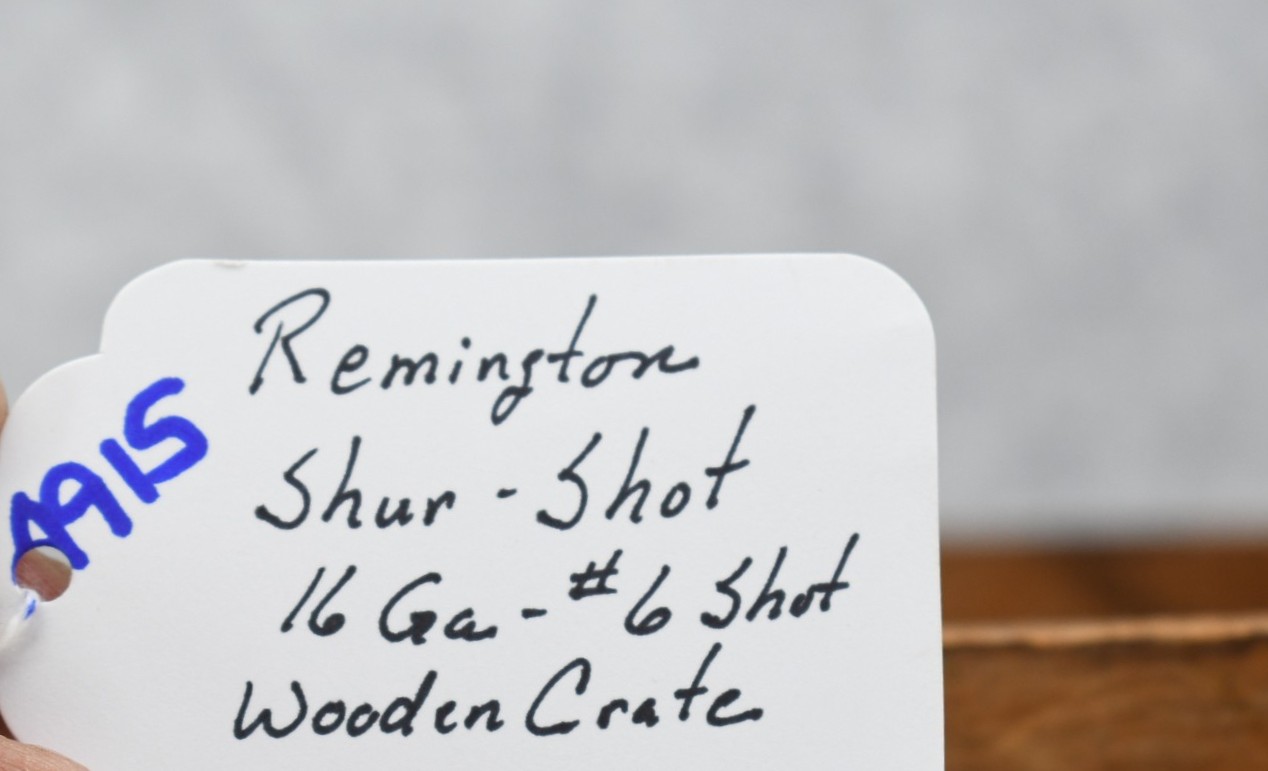 Remington
Shur-Shot
16 Ga - #6 Shot
Wooden Crate
A915